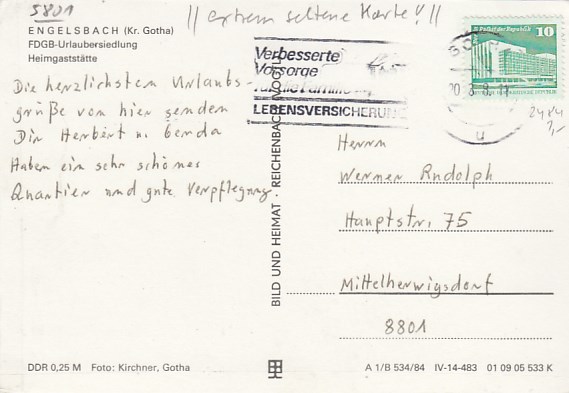 5801
|| extrem seltene Karte! ||
ENGELSBACH (Kr. Gotha)
FDGB-Urlaubersiedlung
Heimgaststätte
Verbesserte
Vorsorge
LEBENSVERSICHERUNG
Palast der Republik 10
Die herzlichsten Urlaubs-
grüße von hier senden
Dir Herbert u. Genda
Haben ein sehr schönes
Quartier und gute Verpflegung.
BILD UND HEIMAT REICHENBACH (VOGTL)
Herrn
Werner Rudolph
Hauptstr. 75
Mittelherwigsdorf
8801
DDR 0,25 M Foto: Kirchner, Gotha
A 1/B 534/84 IV-14-483 01 09 05 533 K